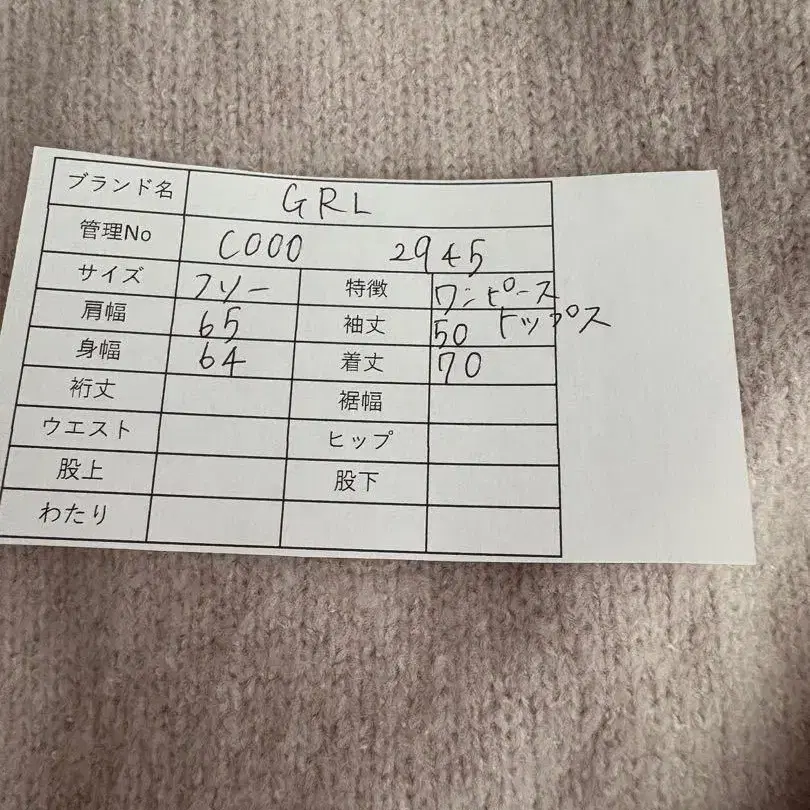 ブランド名 GRL
管理No C000 2945
サイズ フリー 特徴 ワンピース
トップス
肩幅 65 袖丈 50
身幅 64 着丈 70
裄丈 裾幅
ウエスト ヒップ
股上 股下
わたり